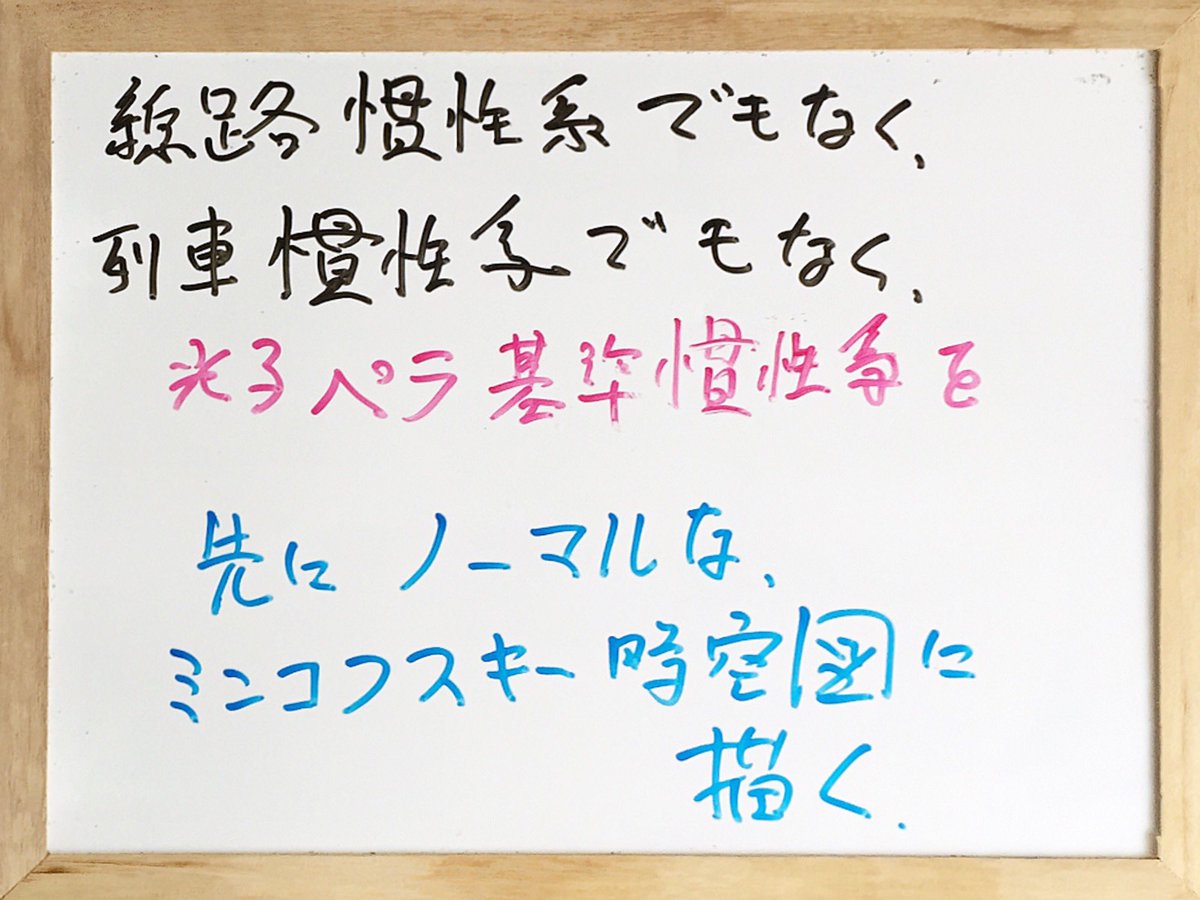 線路慣性系でもなく、
列車慣性系でもなく、
光子ペラ基準慣性系を
先にノーマルな、
ミンコフスキー時空図に
描く.